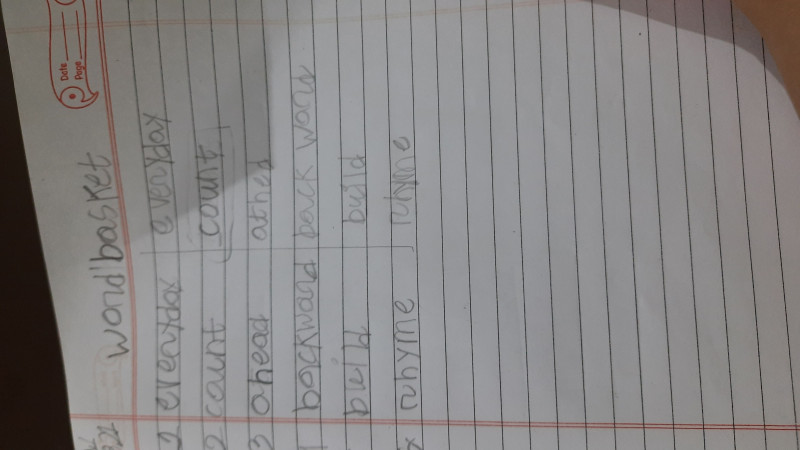 Date
Page
word basket
2 eveaydax everyday
2 count count
3 ahead athed
backward back wary
build build
ruhyme ruhyme